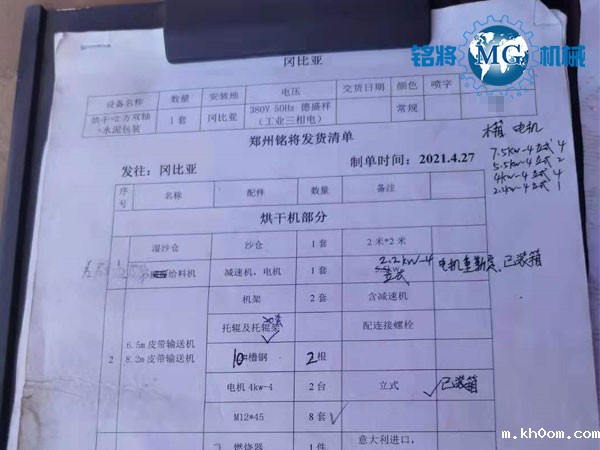 铭将 MG 机械
冈比亚
设备名称 数量 安装地 电压 交货日期 颜色 喷字
烘干+2方双轴+水泥包装 1套 冈比亚 380V 50Hz 德盛祥（工业三相电） 常规
郑州铭将发货清单
发往：冈比亚 制单时间：2021.4.27
木箱 电机
7.5kw-4 立式 4
5.5kw-4 立式 2
4kw-4 立式 4
2.2kw-4 立式 1
序号 名称 配件 数量 备注
烘干机部分
1 湿沙仓 沙仓 1套 2米*2米
给料机 减速机，电机 1套 2.2kw-4 立式 电机重新发，已装箱
2 6.5m皮带输送机
8.2m皮带输送机
机架 2套 含减速机
托辊及托辊架 配连接螺栓
10#槽钢 2根
电机4kw-4 2台 立式 已装箱
M12*45 8套
燃烧器 1件 意大利进口，
m.kh0om.com